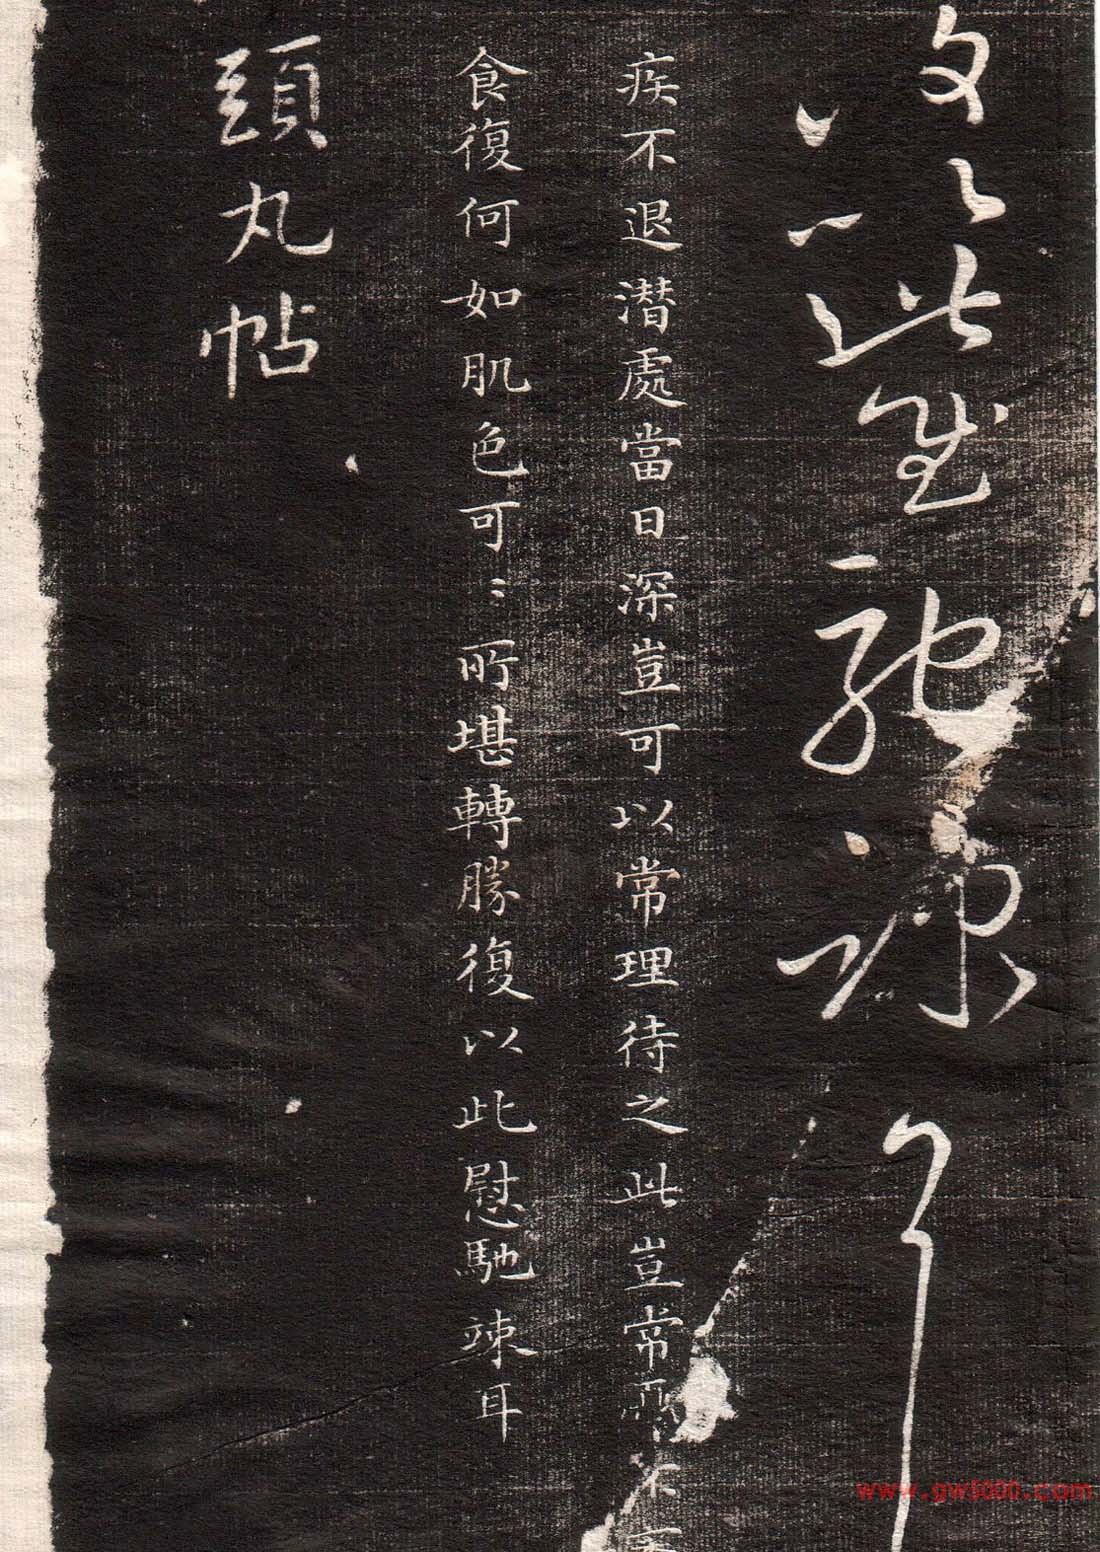 復以此慰馳竦耳
疾不退潜處當日深豈可以常理待之此豈常不
食復何如肌色可〻所堪轉勝復以此慰馳竦耳
頭丸帖
www.gw5000.com